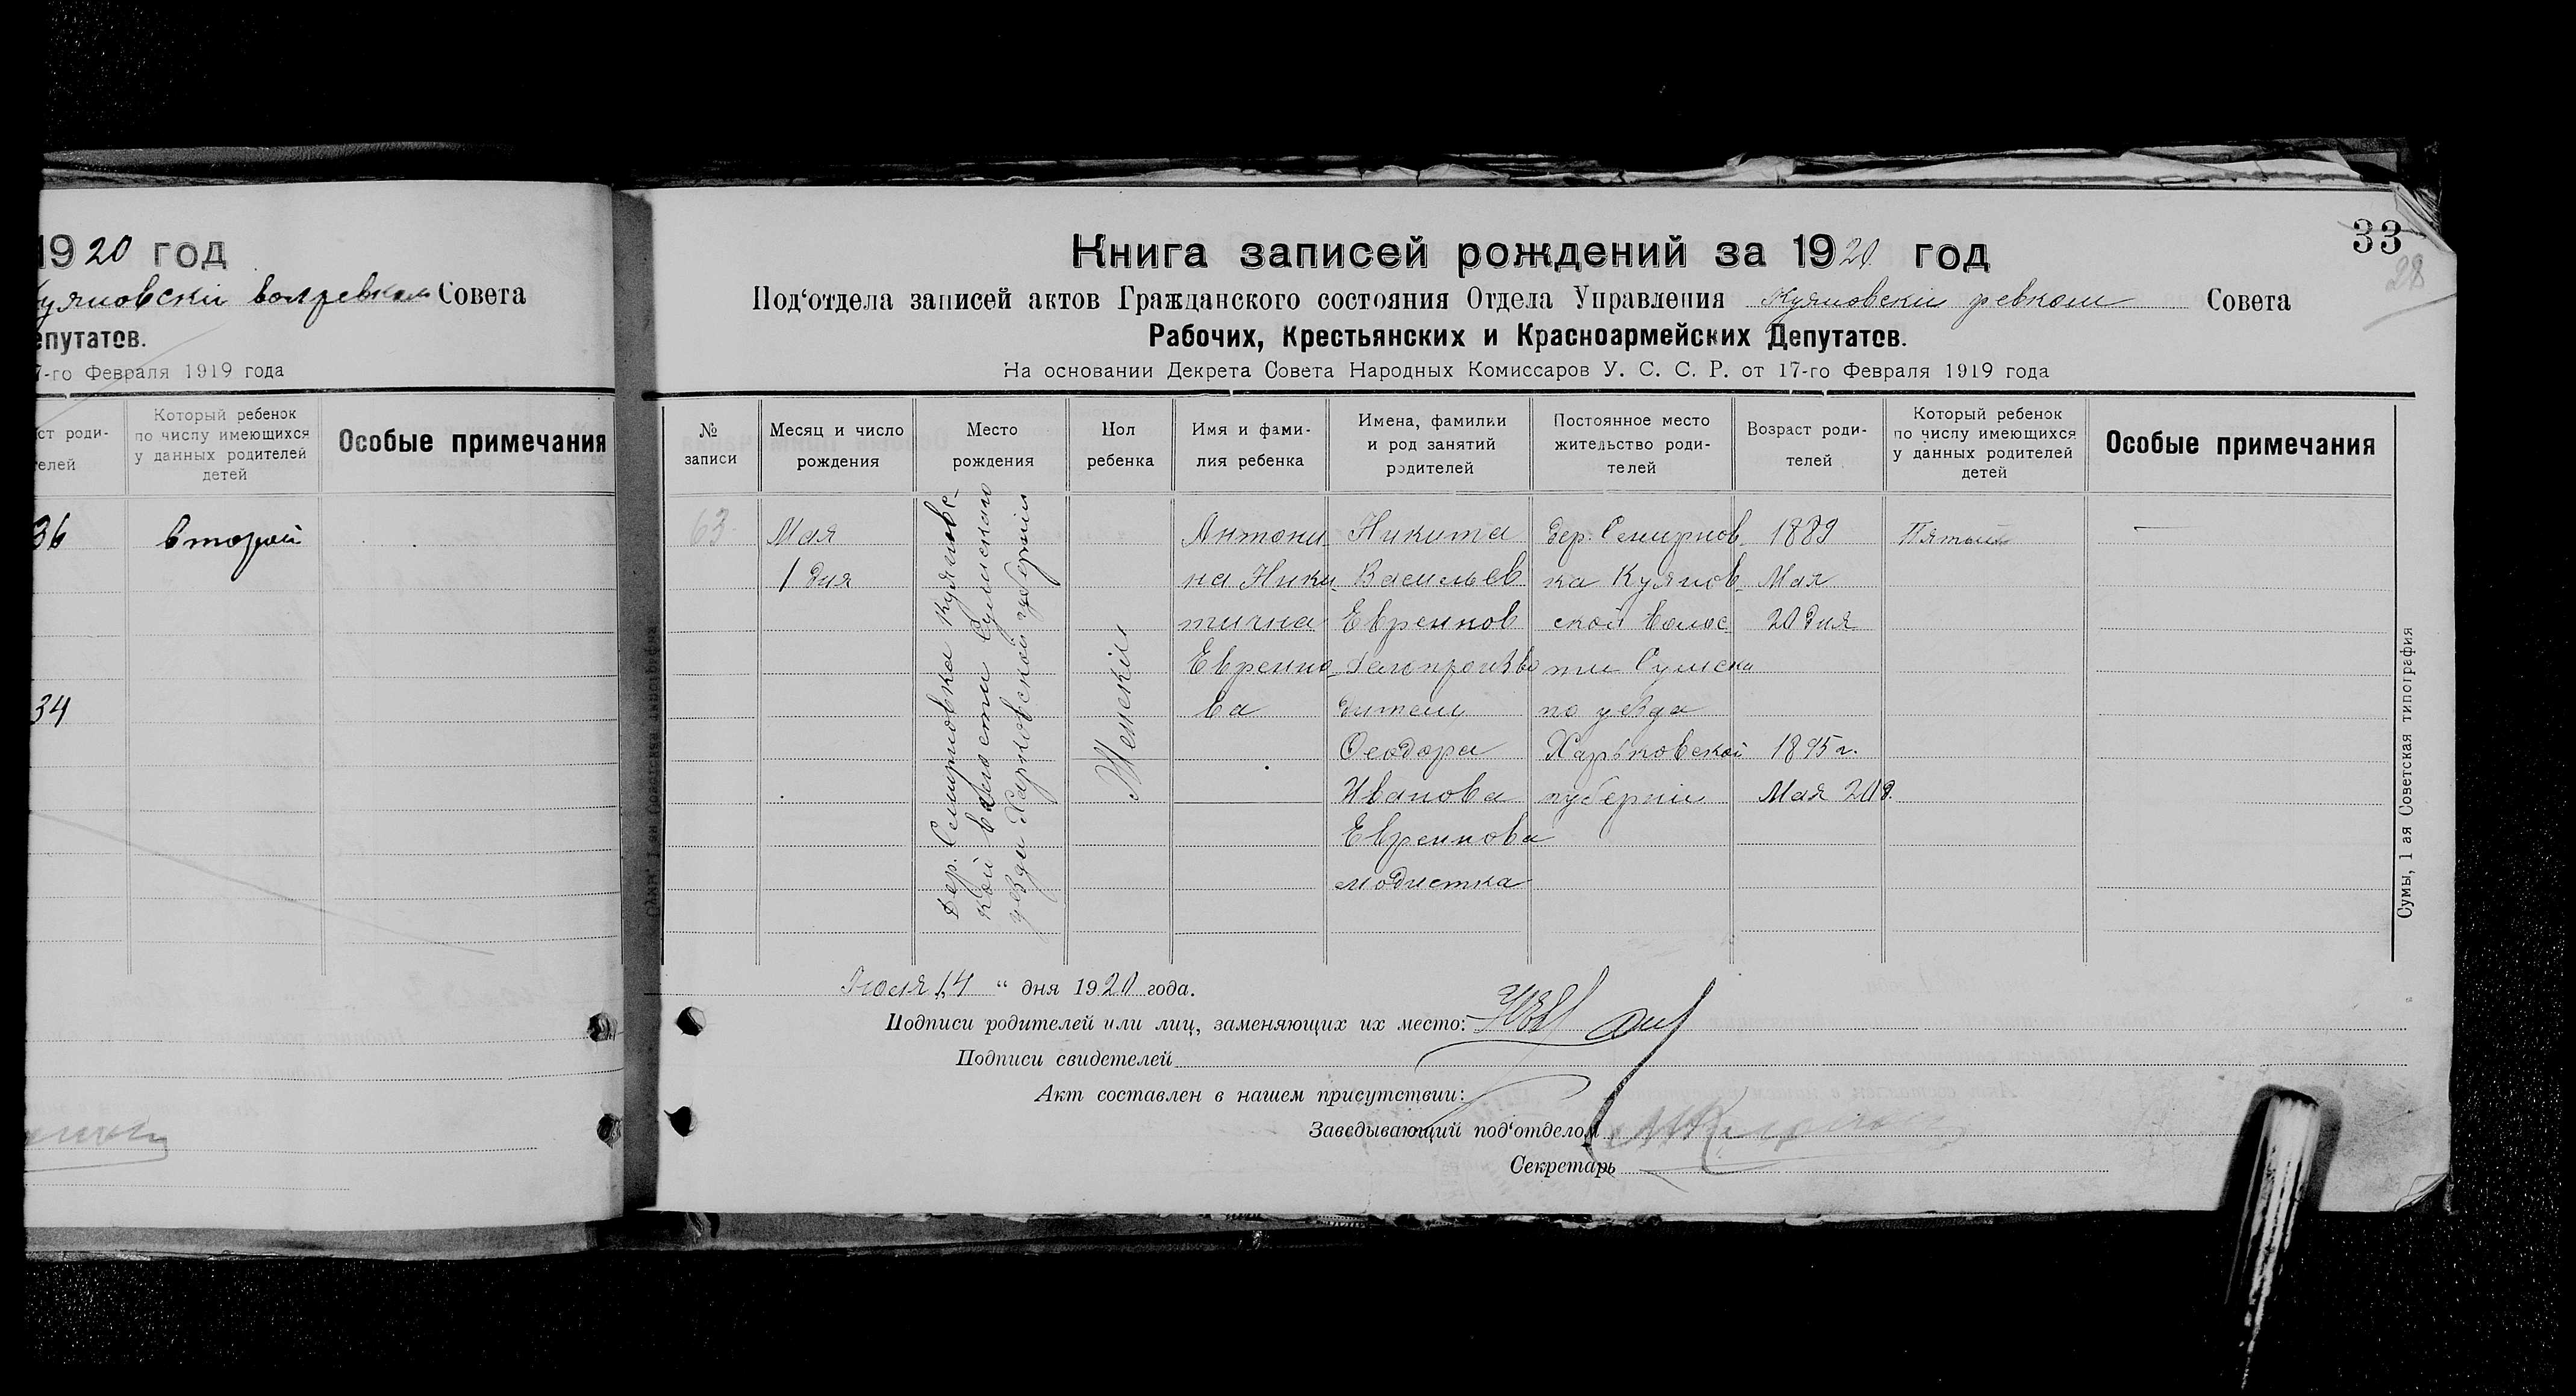 1920 год
Совета
епутатов.
7-го Февраля 1919 года
ст роди-
телей
Который ребенок
по числу имеющихся
у данных родителей
детей
Особые примечания
36
второй
34
33
28
Книга записей рождений за 1920 год
Под‘отдела записей актов Гражданского состояния Отдела Управления Куяновский ревком Совета
Рабочих, Крестьянских и Красноармейских Депутатов.
На основании Декрета Совета Народных Комиссаров У. С. С. Р. от 17-го Февраля 1919 года
№
записи
Месяц и число
рождения
Место
рождения
Пол
ребенка
Имя и фами-
лия ребенка
Имена, фамилии
и род занятий
родителей
Постоянное место
жительство роди-
телей
Возраст роди-
телей
Который ребенок
по числу имеющихся
у данных родителей
детей
Особые примечания
63
Мая
1 дня
дер. Семирновка Куяновс-
кой волости Сумскаго
уезда Харковской губернии
Женский
Антони-
на Ники-
тична
Евреино-
ва
Никита
Васильев
Евреинов
дитель
Феодора
Иванова
Евреинова
модистка
дер. Семирнов-
ка Куянов-
ской волос
ти Сумска
го уезда
Харьковской
губернии
1889
Мая
20 дня
1895 г.
Мая 20 д.
Пятый
—
Июля 14 “ дня 1920 года.
Подписи родителей или лиц, заменяющих их место:
Подписи свидетелей
Акт составлен в нашем присутствии:
Заведывающий под‘отделом
Секретарь
Сумы, 1 ая Советская типография